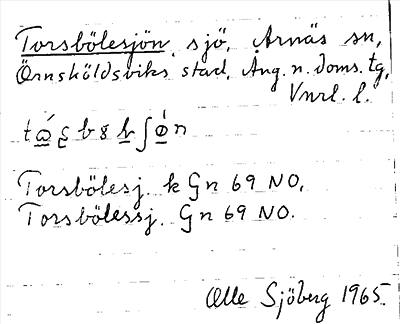 Torsbölesjön, sjö, Arnäs sn,
Örnsköldsviks stad, Ång. n. doms. tg,
Vnrl. l.
Torsbölesj. k Gn 69 NO.
Torsbölessj. Gn 69 NO.
Olle Sjöberg 1965.